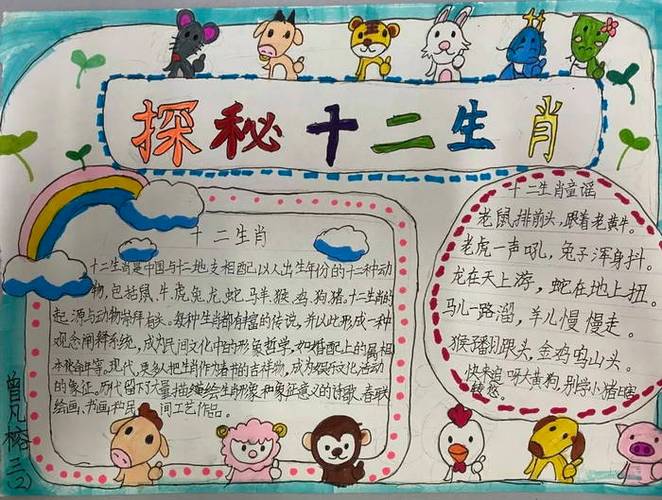 探秘十二生肖
十二生肖
十二生肖是中国与十二地支相配以人出生年份的十二种动
物,包括鼠、牛、虎、兔、龙、蛇、马、羊、猴、鸡、狗、猪。十二生肖的
起源与动物崇拜有关。每种生肖都有丰富的传说,并以此形成一种
观念阐释系统,成为民间文化中的形象哲学,如婚配上的属相
本命年等。现代,更多人把生肖作为春节的吉祥物,成为娱乐文化活动
的象征。历代留下了大量描绘生肖形象和象征意义的诗歌、春联
绘画、书画和民间工艺作品。
十二生肖童谣
老鼠排前头,跟着老黄牛。
老虎一声吼,兔子浑身抖。
龙在天上游,蛇在地上扭。
马儿一路溜,羊儿慢慢走。
猴子翻跟头,金鸡鸣山头。
快来追呀大黄狗,别学小猪
曾凡榕三(2)